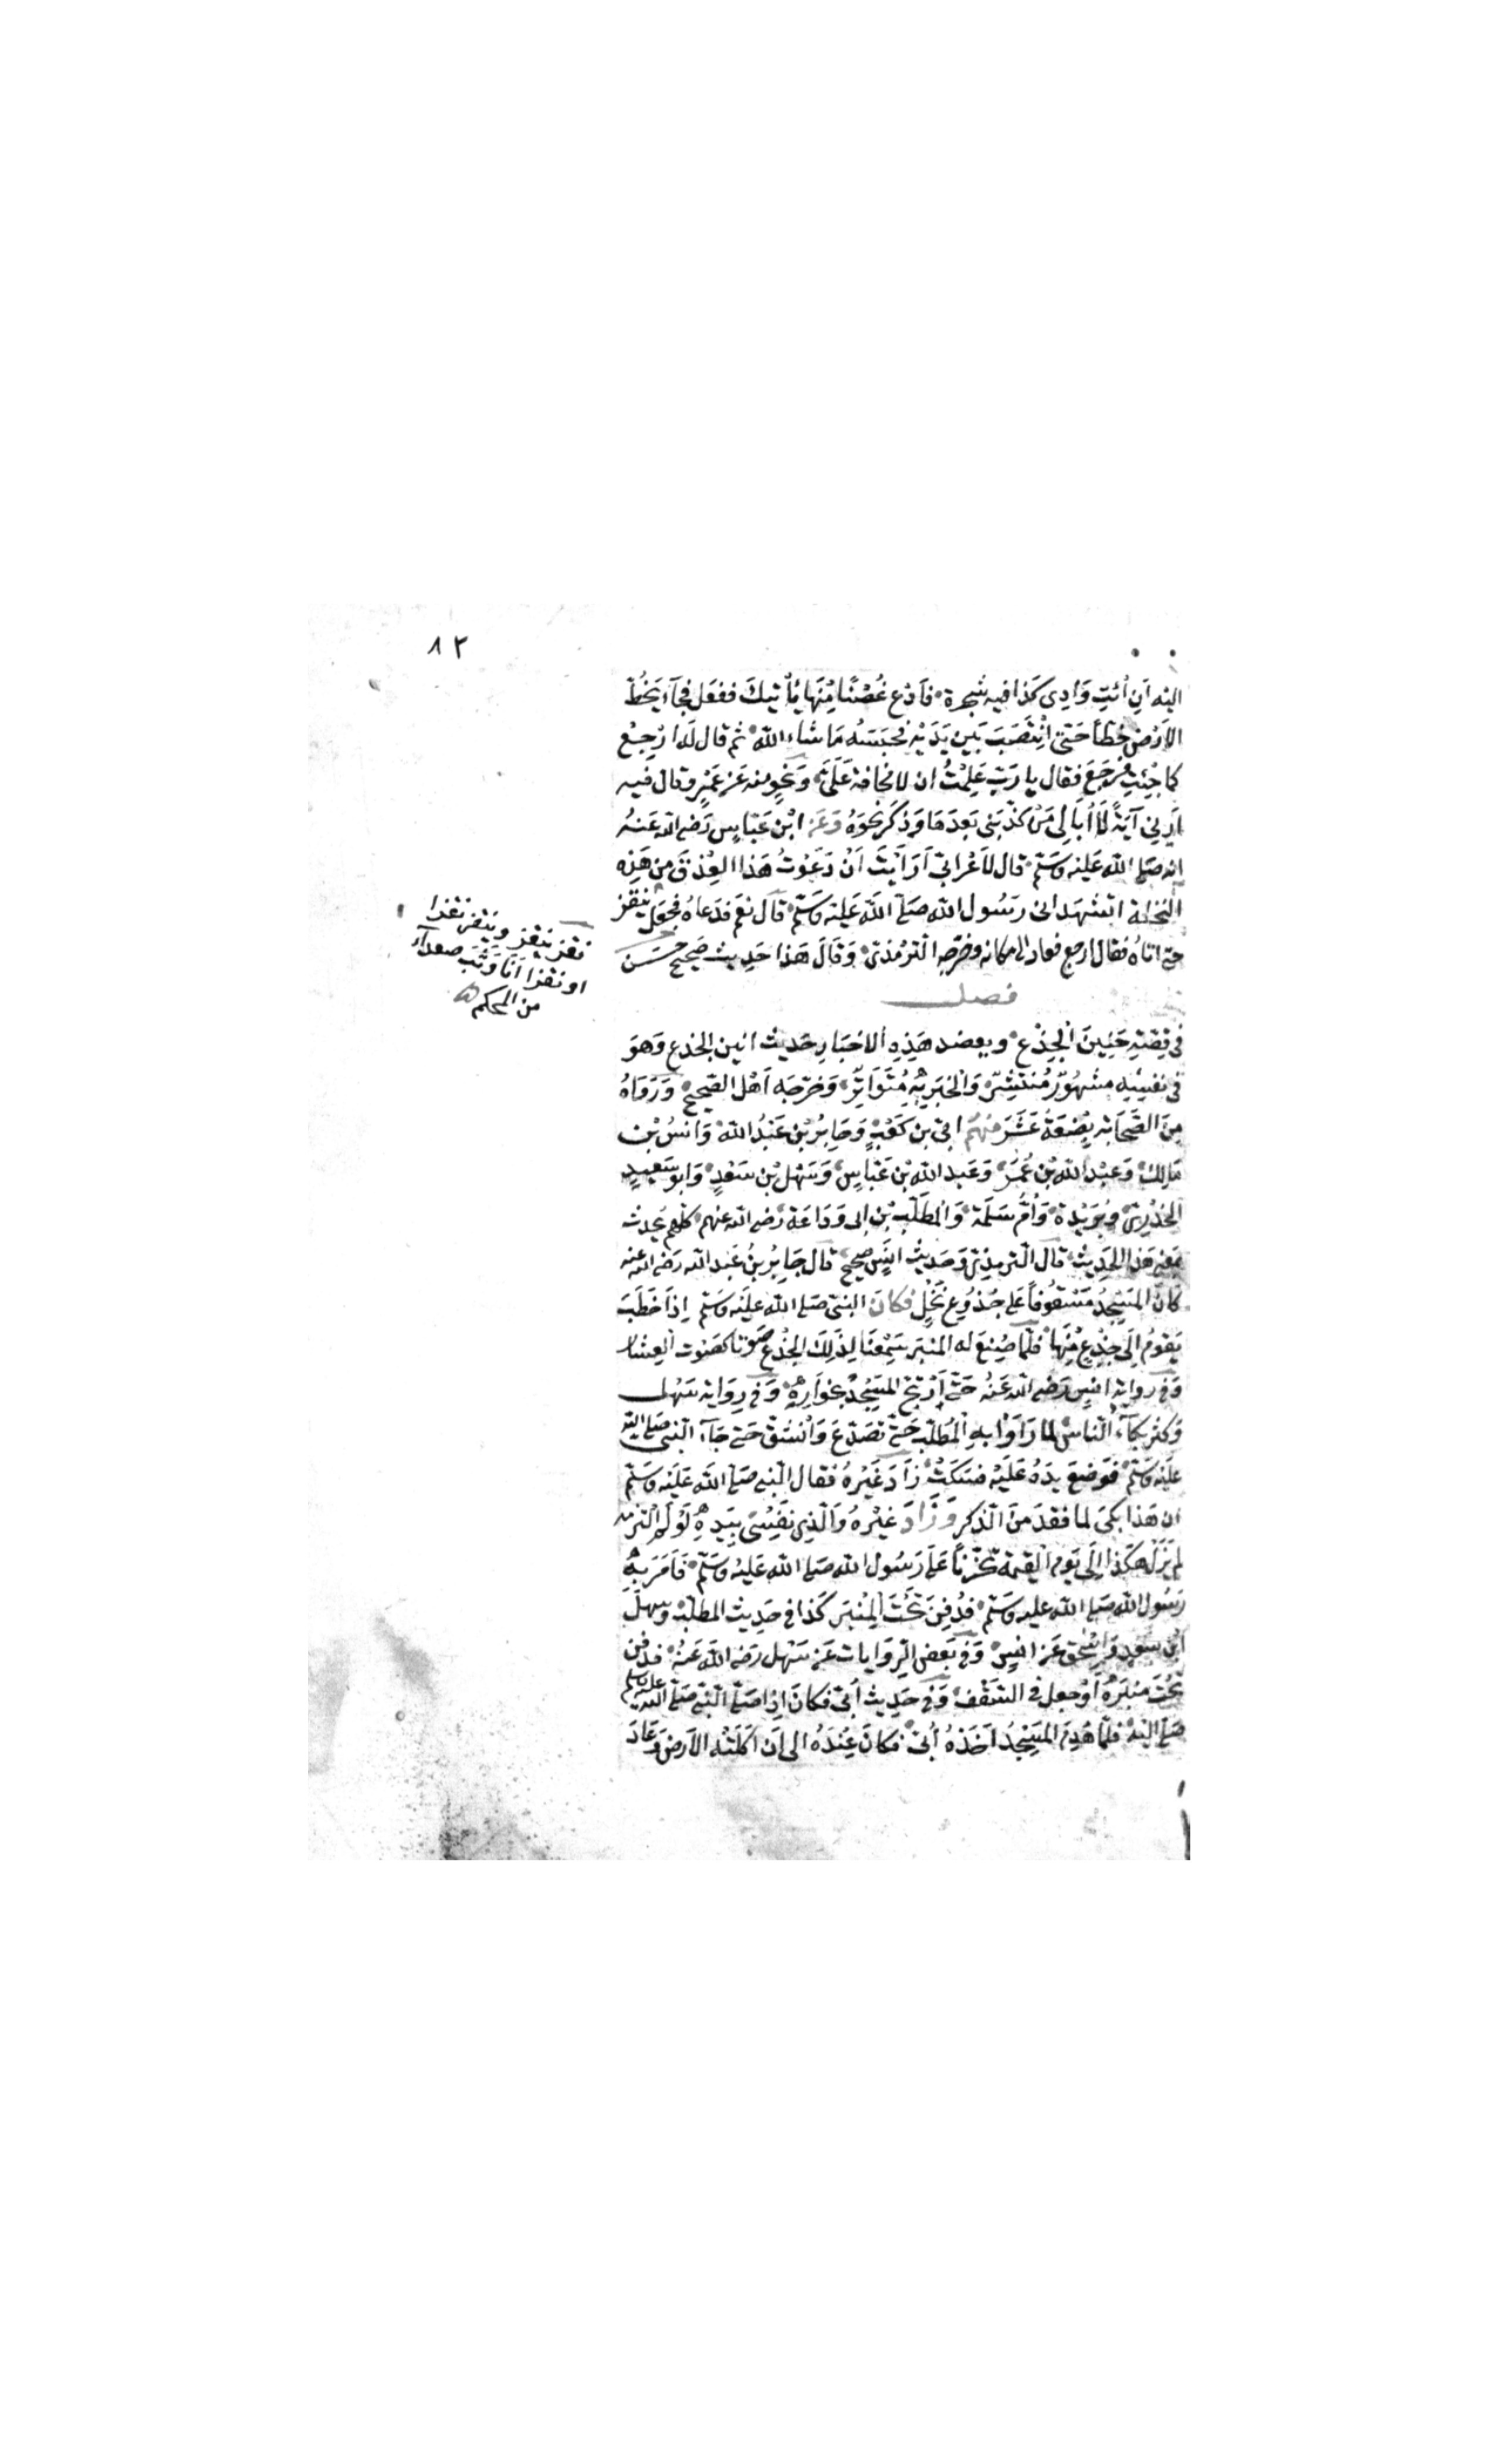 ٨٢
اليه ان ائت وادي كذا فيه شجرة فادع غصنا منها يأتيك ففعل فجاء يخط
الارض خطا حتى انتصب بين يديه فحبسه ما شاء الله ثم قال له ارجع
كما جئت فرجع فقال يا رب علمت ان لا مخافة علي ونحو منه عن عمر وقال فيه
ارني آية لا ابالي من كذبني بعدها وذكر نحوه وعن ابن عباس رضي الله عنه
انه صلى الله عليه وسلم قال لاعرابي ارأيت ان دعوت هذا العذق من هذه
النخلة اتشهد اني رسول الله صلى الله عليه وسلم قال نعم فدعاه فجعل ينقز
حتى اتاه فقال ارجع فعاد الى مكانه وخرجه الترمذي وقال هذا حديث صحيح حسن
نقز ينقز وينقز نقزا
او نقزانا وثب صعداء
من المحكم
فصل
في قصة حنين الجذع ويعضد هذه الاخبار حديث انين الجذع وهو
في نفسه مشهور منتشر والخبر به متواتر وخرجه اهل الصحيح ورواه
من الصحابة بضعة عشر منهم ابي بن كعب وجابر بن عبد الله وانس بن
مالك وعبد الله بن عمر وعبد الله بن عباس وسهل بن سعد وابو سعيد
الخدري وبريدة وام سلمة والمطلب بن ابي وداعة رضي الله عنهم كلهم يحدث
بمعنى هذا الحديث قال الترمذي وحديث انس صحيح قال جابر بن عبد الله رضي الله عنه
كان المسجد مسقوفا على جذوع نخل فكان النبي صلى الله عليه وسلم اذا خطب
يقوم الى جذع منها فلما صنع له المنبر سمعنا لذلك الجذع صوتا كصوت العشار
وفي رواية انس رضي الله عنه حتى ارتج المسجد بخواره وفي رواية سهل
وكثر بكاء الناس لما راوا به المطلب حتى تصدع وانشق حتى جاء النبي صلى الله
عليه وسلم فوضع يده عليه فسكت زاد غيره فقال النبي صلى الله عليه وسلم
ان هذا بكى لما فقد من الذكر وزاد غيره والذي نفسي بيده لو لم التزمه
لم يزل هكذا الى يوم القيمة تحزنا على رسول الله صلى الله عليه وسلم فامر به
رسول الله صلى الله عليه وسلم فدفن تحت المنبر كذا في حديث المطلب وسهل
ابن سعد واسحق عن انس وفي بعض الروايات عن سهل رضي الله عنه فدفن
تحت منبره او جعل في السقف وفي حديث ابي فكان اذا صلى النبي صلى الله عليه وسلم
صلى اليه فلما هدم المسجد اخذه ابي فكان عنده الى ان اكلته الارض وعاد